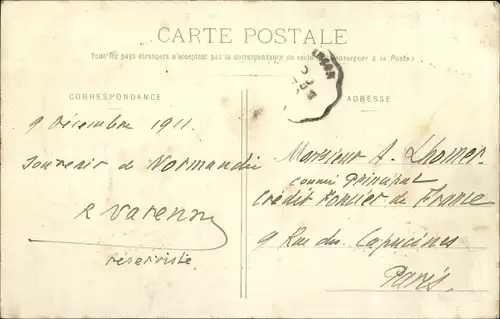 CARTE POSTALE
Tous les pays étrangers n'acceptent pas la correspondance au recto (se renseigner à la Poste)
CORRESPONDANCE
9 Décembre 1911.
Souvenir de Normandie
R Varenn
réserviste
ADRESSE
Monsieur A. Lhomer
commis Principal
Crédit Foncier de France
9 Rue des Capucines
Paris